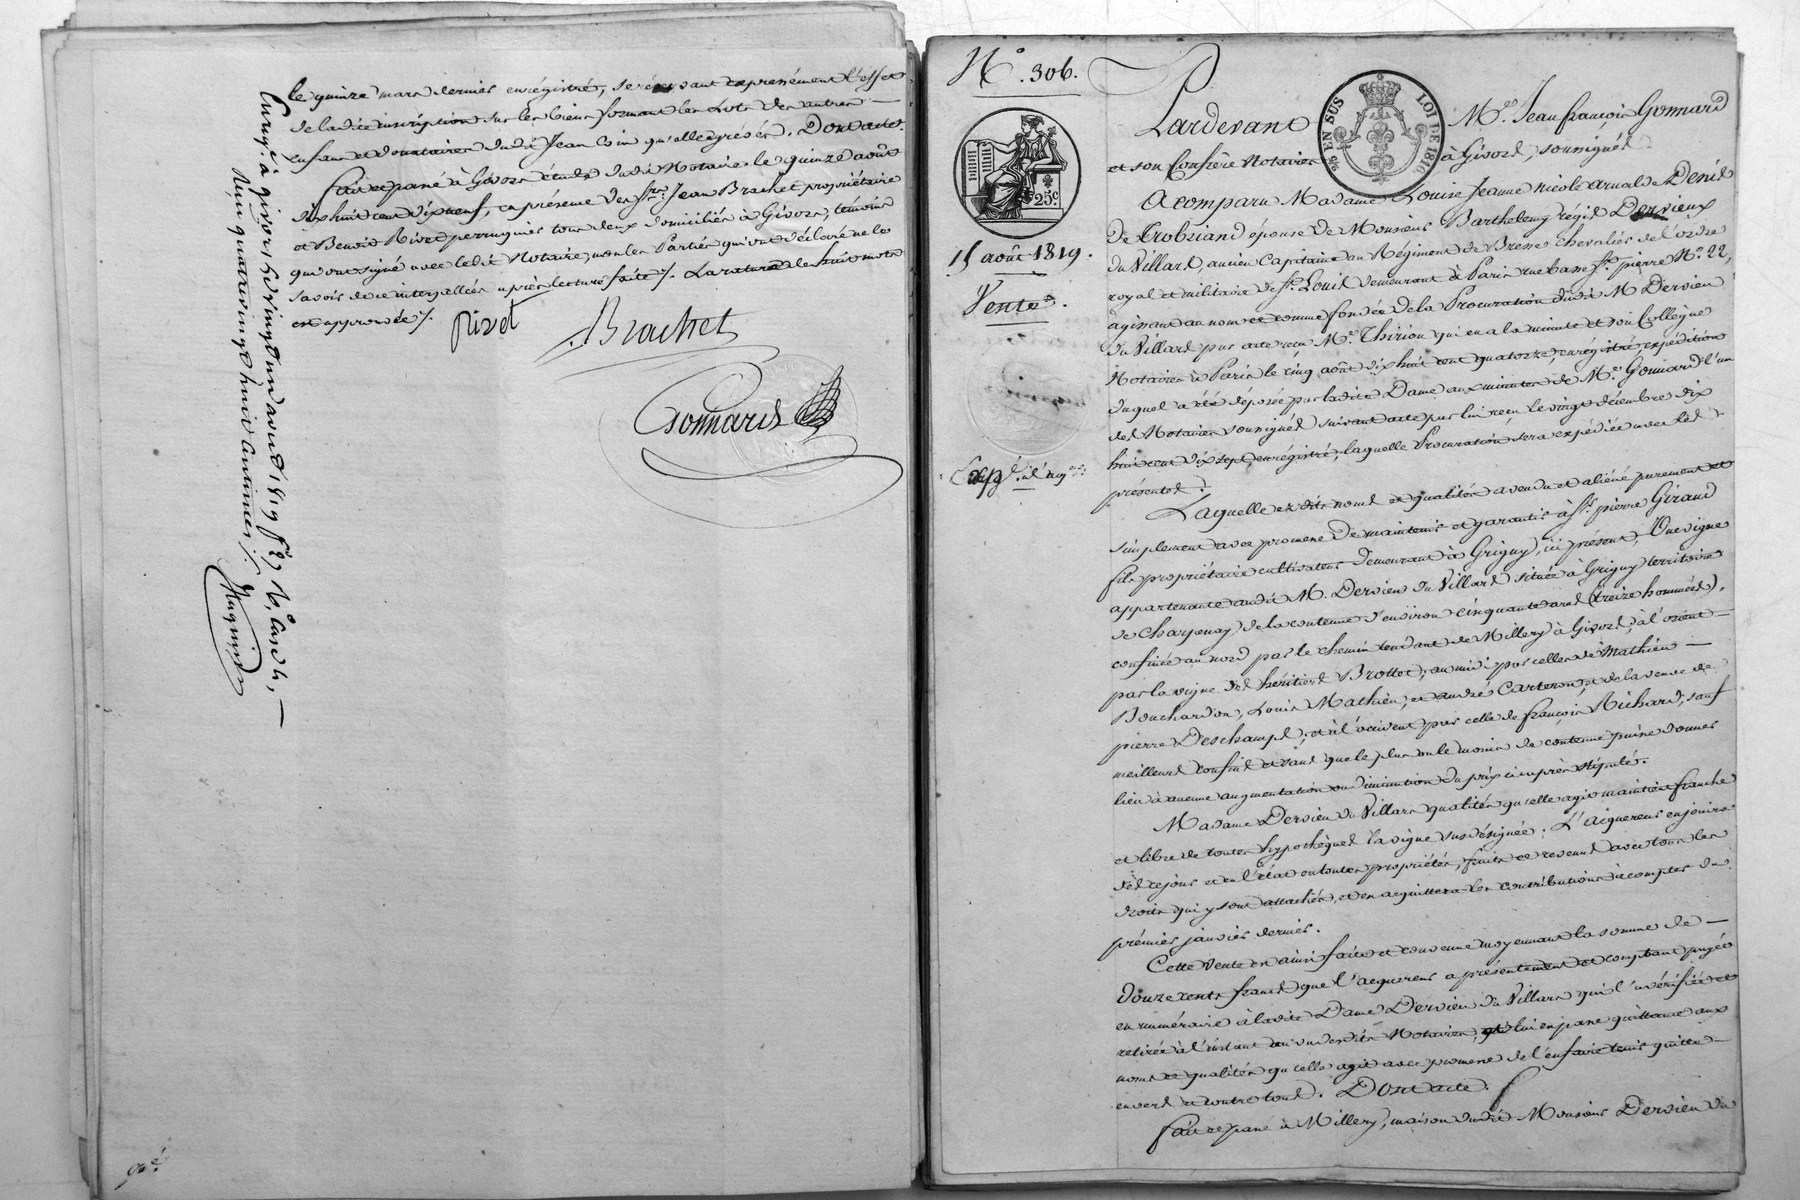 le quinze mars dernier enregistré, se réservant expressément l'effet
de ladite inscription sur les biens formant les lots des autres —
enfans et donataires dudit Jean Coin qu'elle grévés. Dont acte.
Fait et passé à Givors étude dudit Notaire le quinze août
dix huit cent dix neuf, en présence des Srs. Jean Brachet propriétaire
et Benoit Rivet perruquier tous deux domiciliés à Givors, témoins
qui ont signé avec ledit Notaire, non les Parties qui ont déclaré ne le
savoir de ce interpellées après lecture faite /. La rature de huit mots
est approuvée /.
Rivet
Brachet
Gonnard
Enregé. à givors le vingt un aout 1819 fo. 76, Case 4, —
Reçu quatre vingt huit centimes /.
Huguin
No. 306.
25c
15 août 1819.
Vente.
Expé. é
Pardevant
EN SUS
LOI DE 1816
Me. Jean françois Gonnard
et son Confrère Notaires
à Givors, soussignés
A comparu Madame Louise Jeanne Nicole arnalde Denis
De Trobriand épouse de Monsieur Barthelemy régis Dervieux
du Villard, ancien Capitaine au Régiment de Bresse chevalier de l'ordre
royal et militaire de St. Louis demeurant à Paris rue basse St. pierre No. 22,
agissant au nom et comme fondée de la Procuration dudit M. Dervieu
du Villard par acte reçu Me. Thirion qui en a la minute et son Collègue
Notaires à Paris le cinq août dix huit cent quatorze, enregistré, expédition
duquel a été déposée par ladite Dame aux minutes de Me. Gonnard l'un
des Notaires soussignés suivant acte par lui reçu le vingt décembre dix
huit cent dix sept, enregistré, laquelle Procuration sera expédiée avec les
présentes.
Laquelle ez dits noms et qualités a vendu et aliéné purement et
simplement avec promesse de maintenir et garantir à Sr. pierre Giraud
fils propriétaire cultivateur demeurant à Grigny, ici présent, Une vigne
appartenante audit M. Dervieu du Villard située à Grigny territoire
de Charjonay, de la contenue d'environ cinquante ares (treize hommées),
confinée au nord par le chemin tendant de Millery à Givors, à l'orient —
par la vigne des héritiers Brottet; au midi par celles de Mathieu —
Bouchardon, Louis Mathieu, et andré Carteron, et de la veuve de
pierre Deschamps; et à l'occident par celle de françois Richard, sauf
meilleurs confins et sans que le plus ou le moins de contenue puisse donner
lieu à aucune augmentation ou diminution du prix ci après stipulé.
Madame Dervieu du Villars qualités qu'elle agit maintient franche
et libre de toutes hypothèques la vigne susdésignée. L'aiquereur en jouira
dès ce jour et en l'état en toutes propriétés, fruits et revenus avec tous les
droits qui y sont attachés, et en acquittera les contributions à compter du
prémier janvier dernier.
Cette vente est ainsi faite et convenue moyennant la somme de —
Douze cents francs que l'acquereur a présentement et comptant payée
en numéraire à ladite Dame Dervieu du Villars qui l'a vérifiée et
retirée à l'instant au vu desdits Notaires, et lui en passe quittance aux
noms et qualités qu'elle agit avec promesse de l'en faire tenir quitte —
envers et contre tous. Dont acte.
fait et passé à Millery, maison dudit Monsieur Dervieu du